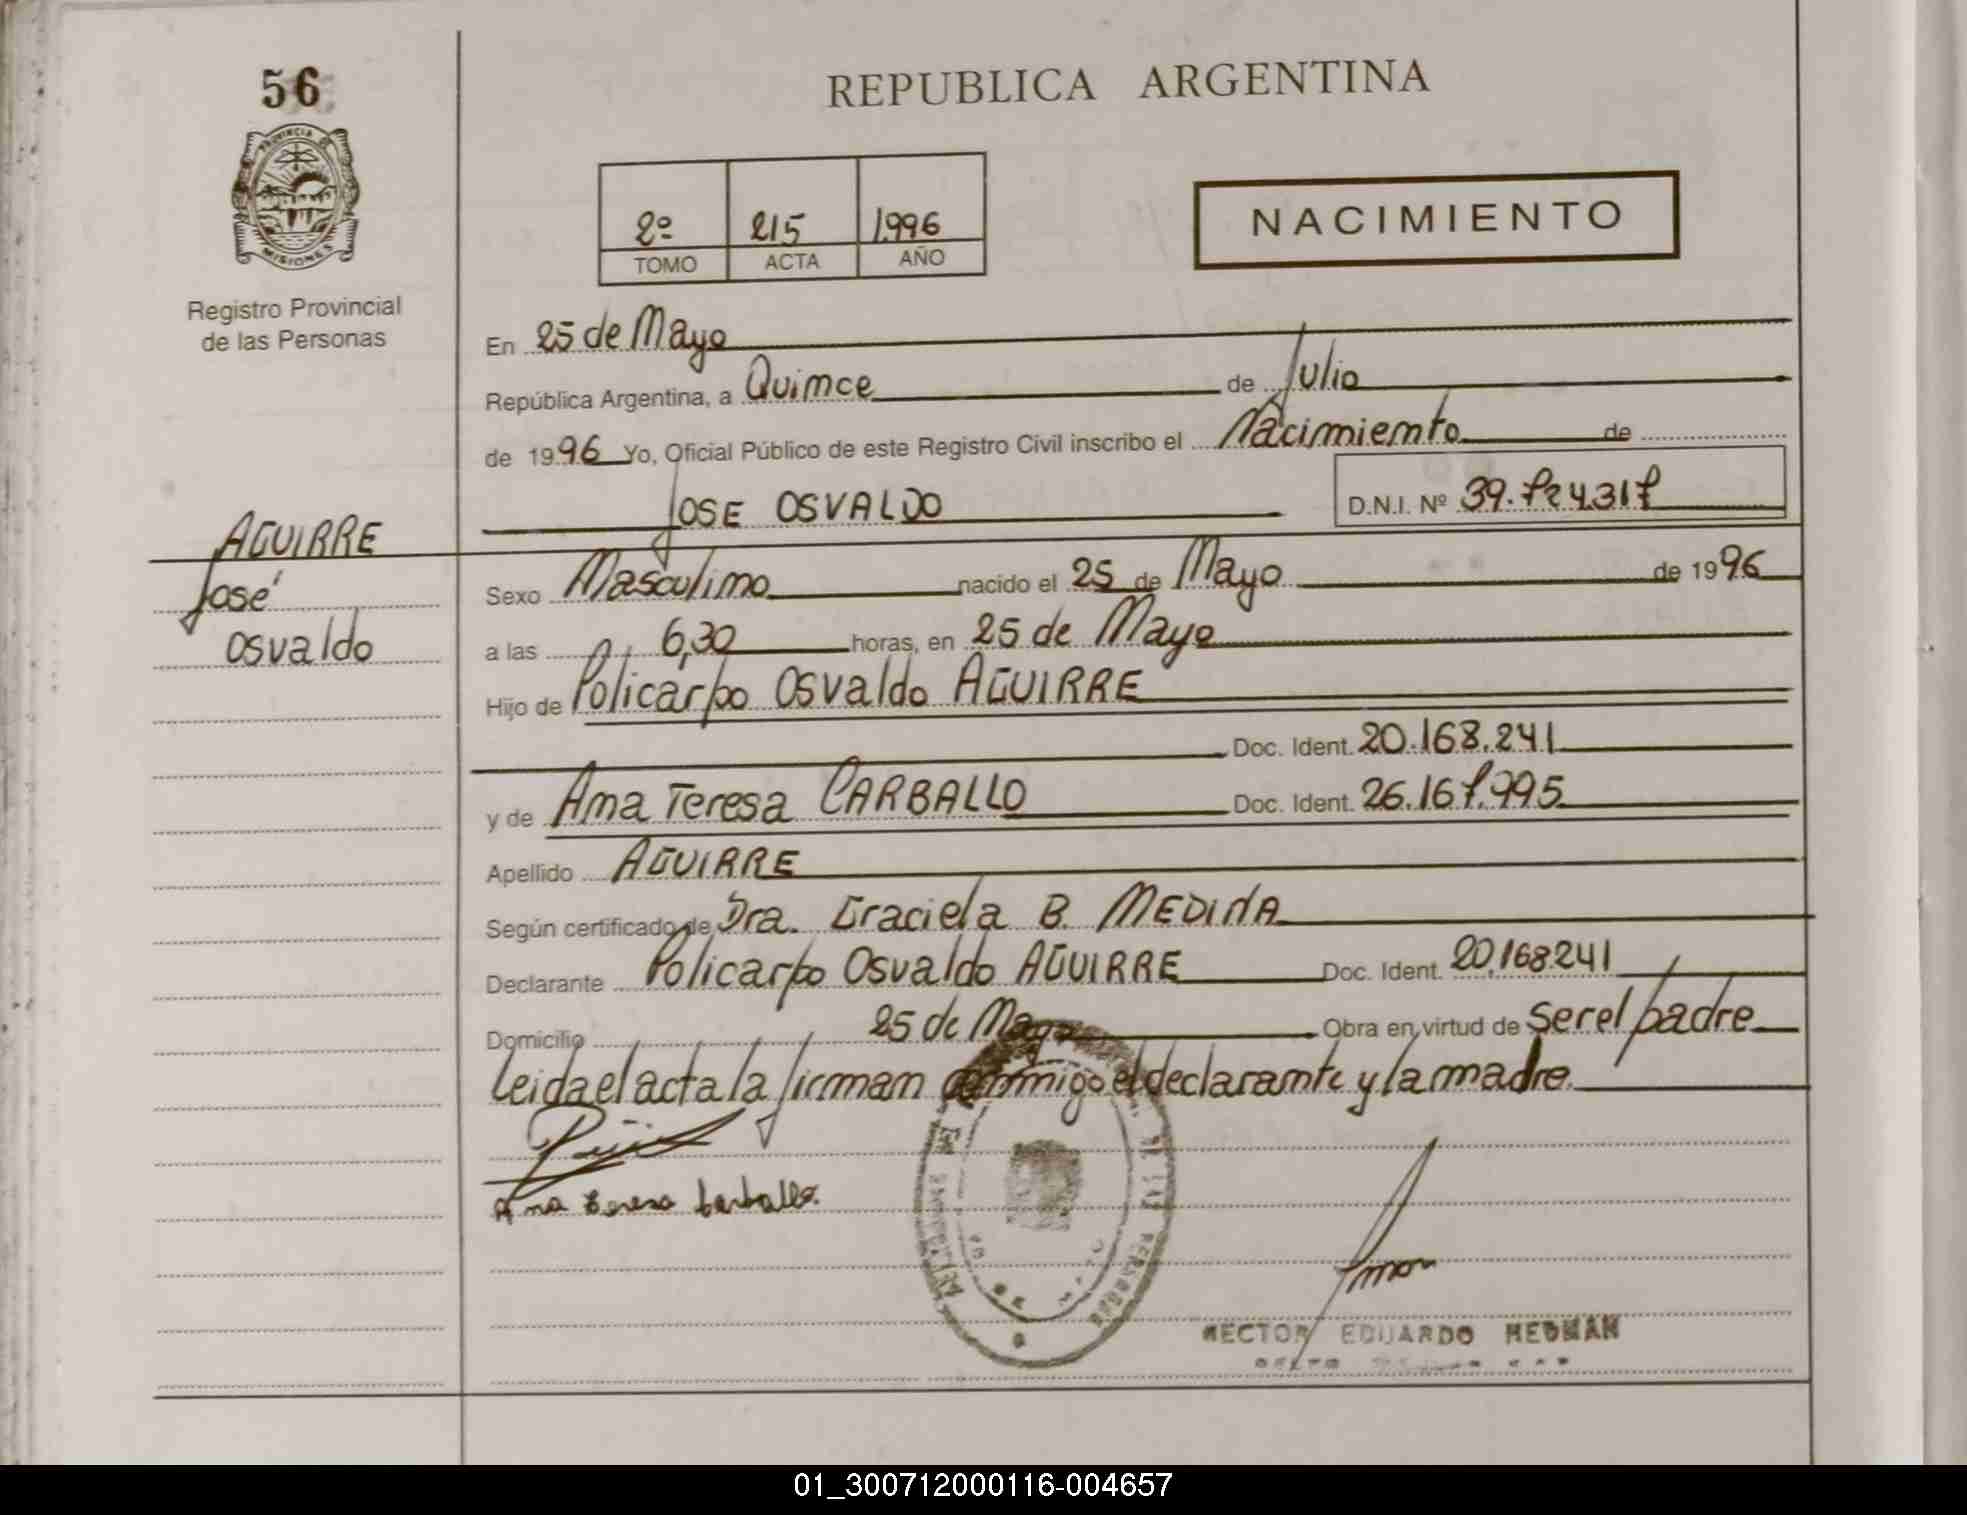 56
PROVINCIA DE
MISIONES
Registro Provincial
de las Personas
REPUBLICA ARGENTINA
2º 215 1996
TOMO ACTA AÑO
NACIMIENTO
En 25 de Mayo
República Argentina, a Quince de Julio
de 1996 Yo, Oficial Público de este Registro Civil inscribo el Nacimiento de
JOSE OSVALDO D.N.I. Nº 39.724.317
AGUIRRE
José
Osvaldo
Sexo Masculino nacido el 25 de Mayo de 1996
a las 6,30 horas, en 25 de Mayo
Hijo de Policarpo Osvaldo AGUIRRE
Doc. Ident. 20.168.241
y de Ana Teresa CARBALLO Doc. Ident. 26.167.995
Apellido AGUIRRE
Según certificado de Dra. Graciela B. MEDINA
Declarante Policarpo Osvaldo AGUIRRE Doc. Ident. 20.168.241
Domicilio 25 de Mayo Obra en virtud de ser el padre
Leida el acta la firman conmigo el declarante y la madre
Ana Teresa Carballo
DE LAS PERSONAS
HECTOR EDUARDO HEDMAN
01_300712000116-004657